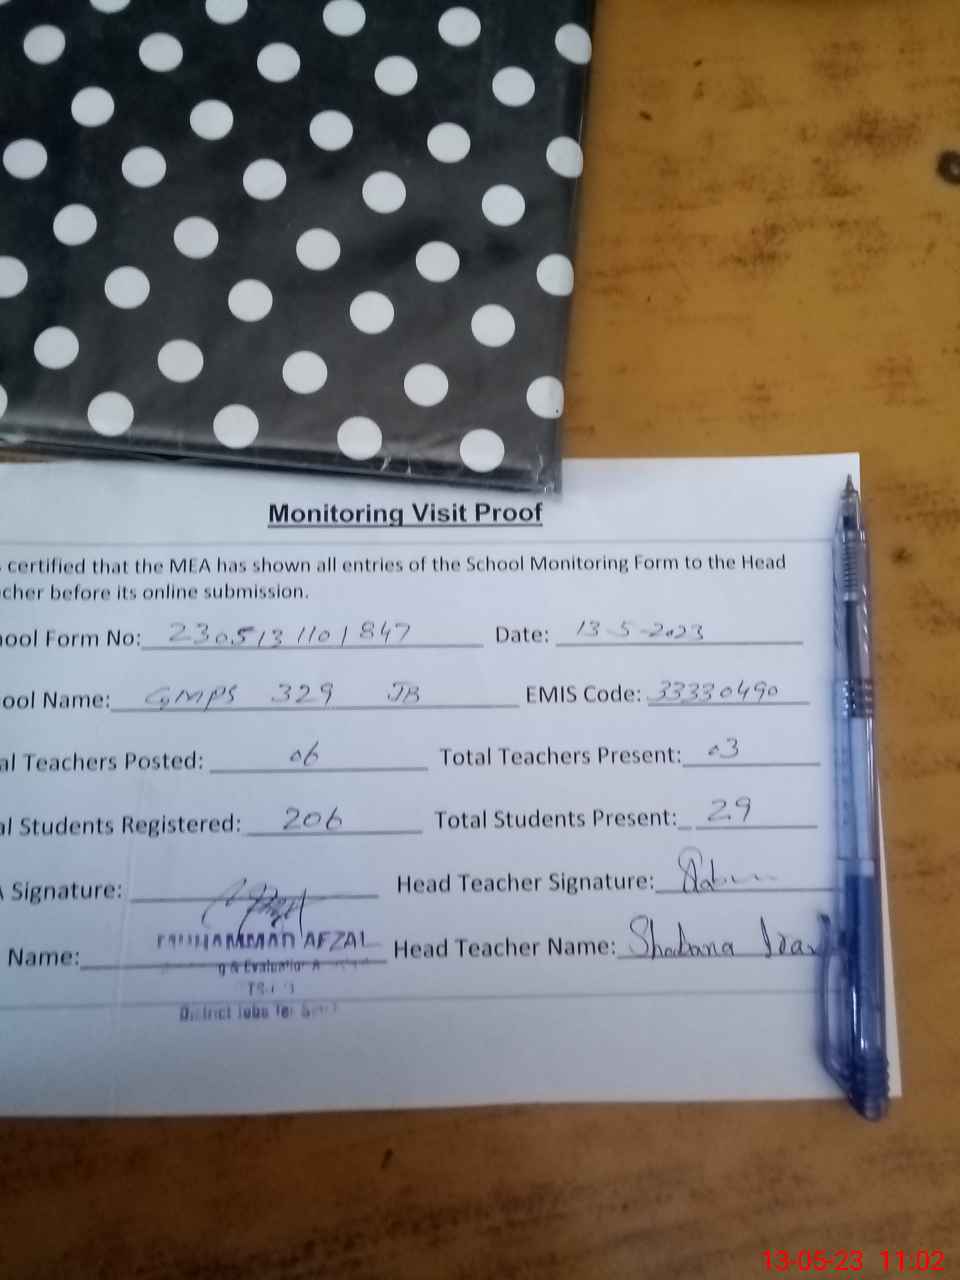 Monitoring Visit Proof
certified that the MEA has shown all entries of the School Monitoring Form to the Head
cher before its online submission.
ool Form No: 2305131101847 Date: 13-5-2023
ool Name: GMPS 329 JB EMIS Code: 33330490
al Teachers Posted: 06 Total Teachers Present: 03
al Students Registered: 206 Total Students Present: 29
A Signature: Head Teacher Signature:
Name: MUHAMMAD AFZAL Head Teacher Name: Shabana
g & Evaluation A
District Toba Tek Singh
13-05-23 11:02